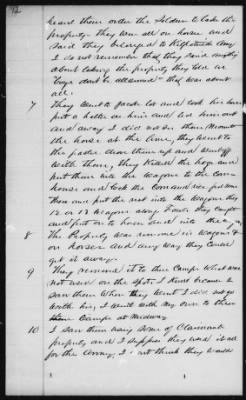 12
heard them order the Soldiers to take the
property. They were all on horses and
said they belonged to Kilpatrick Army
I do not remember that they said anything
about taking the property they told us
boys don't be alarmed that was about
all.
7 They went to Jacks lot and took his horse
put a halter on him and led him out
and away I did not see them mount
the horse at the time, they went to
the ... drove them up and went off
with them, they killed the hogs and
put them into the wagons to the Corn
house and took the Corn and
then and put the rest into the wagons they
12 or 13 Wagons away
and put on to horses and into the wagons
8 The Property was removed in Wagons &
on horses and any way they could
get it away.
9 They removed it to their Camps What was
not used on the spot, I know because I
saw them When they went I did not go
with him, I went with my own to their
Camps at Midway
10 I saw them using some of Claimants
property and I suppose they used it all
for the Army, I not think they would